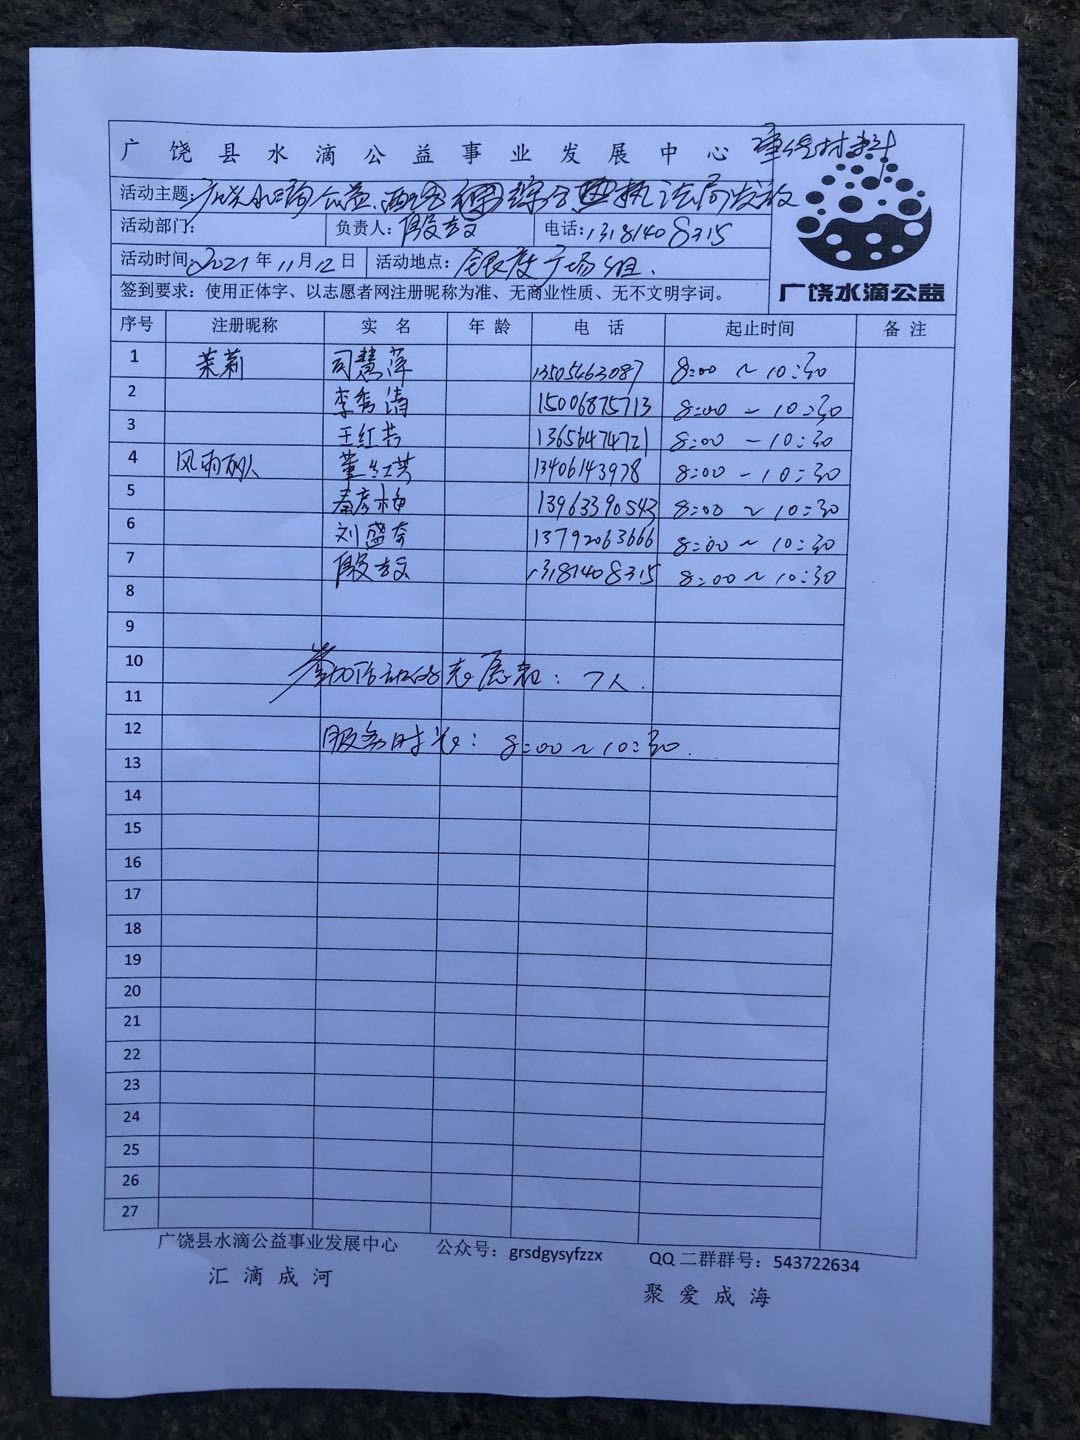 广饶县水滴公益事业发展中心 宣传材料
活动主题:广饶水滴公益、配合 综合 执法局发放
活动部门: 负责人:殷 电话:13181408315
活动时间:2021年11月12日 活动地点: 广场 组.
签到要求：使用正体字、以志愿者网注册昵称为准、无商业性质、无不文明字词。
广饶水滴公益
序号 注册昵称 实名 年龄 电话 起止时间 备注
1 茉莉 司慧萍 13505463087 8:00 ~ 10:30
2 李秀清 15006875713 8:00 ~ 10:30
3 王红芸 13656474721 8:00 - 10:30
4 风雨 人 董红芸 13406143978 8:00 - 10:30
5 秦彦梅 13963390543 8:00 ~ 10:30
6 刘盛奎 13792063666 8:00 ~ 10:30
7 殷 13181408315 8:00 ~ 10:30
8
9
10 参加活动的志愿者: 7人.
11
12 服务时长: 8:00 ~ 10:30.
13
14
15
16
17
18
19
20
21
22
23
24
25
26
27
广饶县水滴公益事业发展中心 公众号：grsdgysyfzzx QQ 二群群号：543722634
汇滴成河 聚爱成海